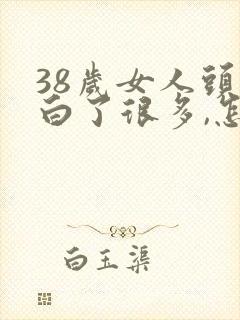 38歲女人頭
白了很多,怎
白玉渠